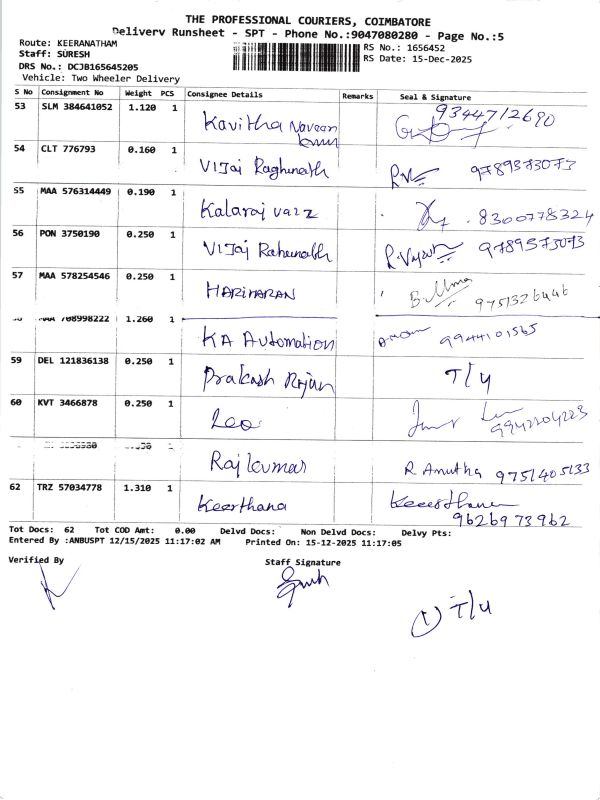 THE PROFESSIONAL COURIERS, COIMBATORE
Delivery Runsheet - SPT - Phone No.:9047080280 - Page No.:5
Route: KEERANATHAM
Staff: SURESH
DRS No.: DCJB165645205
Vehicle: Two Wheeler Delivery
RS No.: 1656452
RS Date: 15-Dec-2025
S No Consignment No Weight PCS Consignee Details Remarks Seal & Signature
53 SLM 384641052 1.120 1 Kavitha Naveen 9344712690
54 CLT 776793 0.160 1 Vijai Raghunath 9789373073
55 MAA 576314449 0.190 1 Kalaraj 8300778324
56 PON 3750190 0.250 1 Vijai 9789573073
57 MAA 578254546 0.250 1 HARIHARAN B. Uma 9751326446
MAA 708998222 1.260 1 KA Automation 9944101565
59 DEL 121836138 0.250 1 Prakash Rajan T/4
60 KVT 3466878 0.250 1 Leo 9942204223
Rajkumar R Anutha 9751405133
62 TRZ 57034778 1.310 1 Keerthana Keeerthana
9626973962
Tot Docs: 62 Tot COD Amt: 0.00 Delvd Docs: Non Delvd Docs: Delvy Pts:
Entered By :ANBUSPT 12/15/2025 11:17:02 AM Printed On: 15-12-2025 11:17:05
Verified By Staff Signature
1 T/4